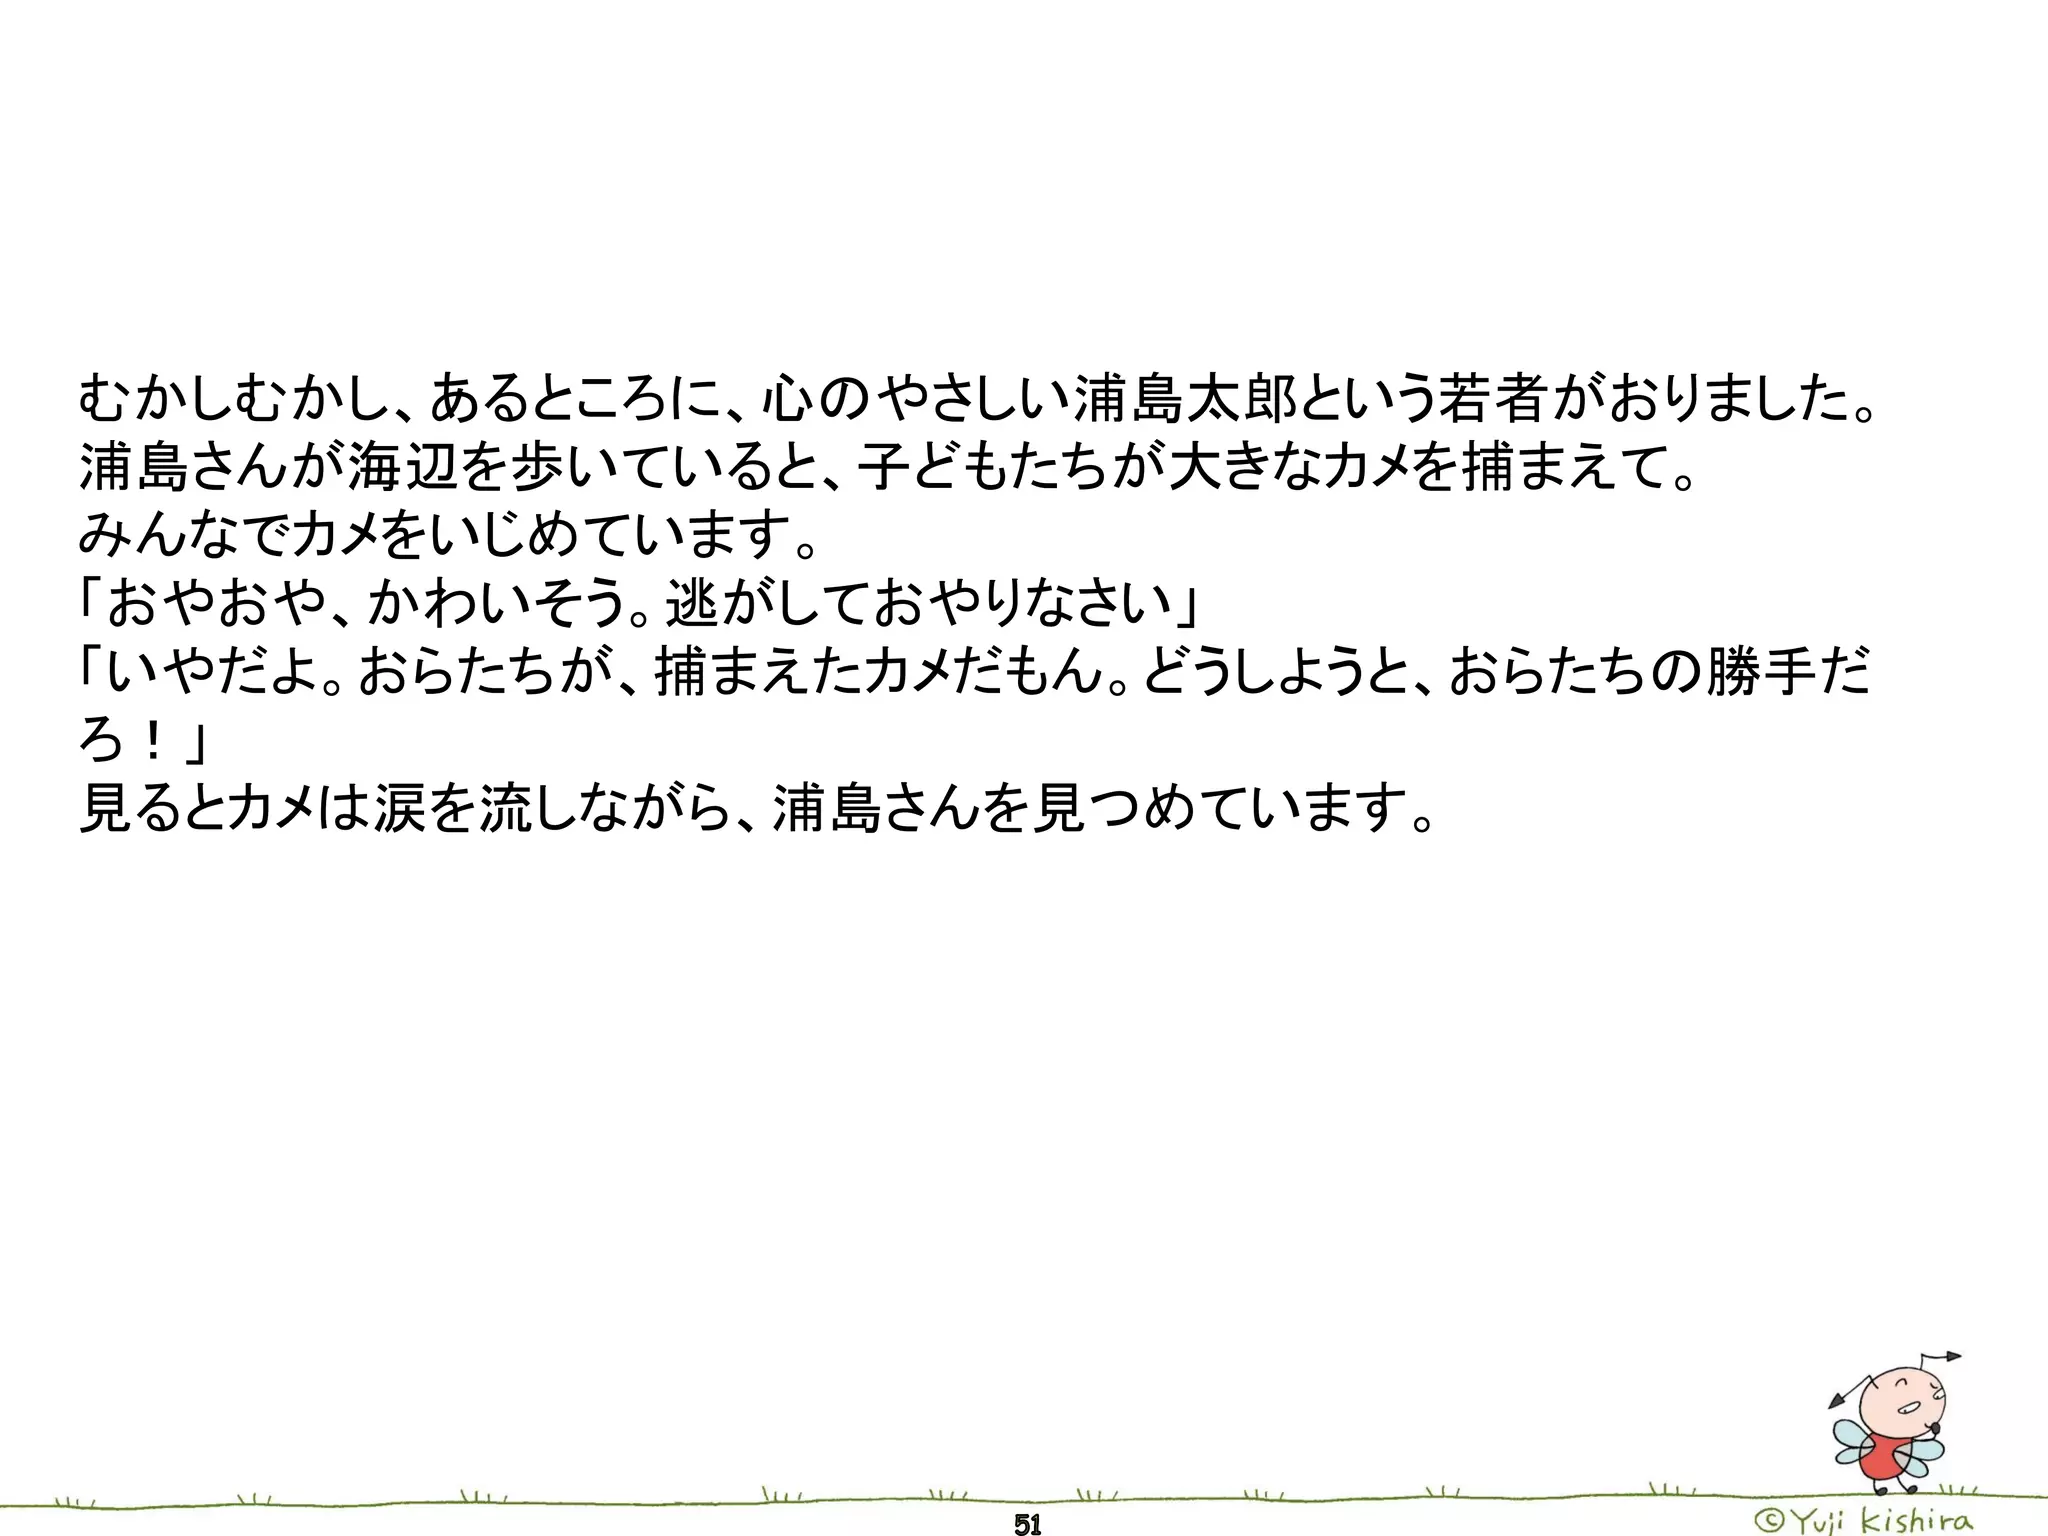 むかしむかし、あるところに、心のやさしい浦島太郎という若者がおりました。
浦島さんが海辺を歩いていると、子どもたちが大きなカメを捕まえて。
みんなでカメをいじめています。
「おやおや、かわいそう。逃がしておやりなさい」
「いやだよ。おらたちが、捕まえたカメだもん。どうしようと、おらたちの勝手だ
ろ！」
見るとカメは涙を流しながら、浦島さんを見つめています。
51
©Yuji Kishira